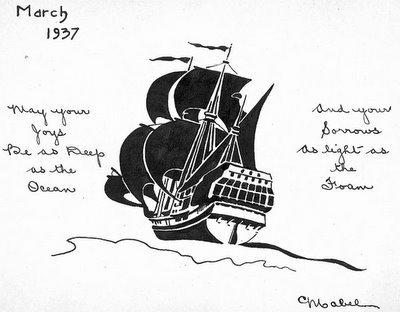 March
1937
May your
Joys
Be as Deep
as the
Ocean
And your
Sorrows
As light as
the
Foam
Mabel